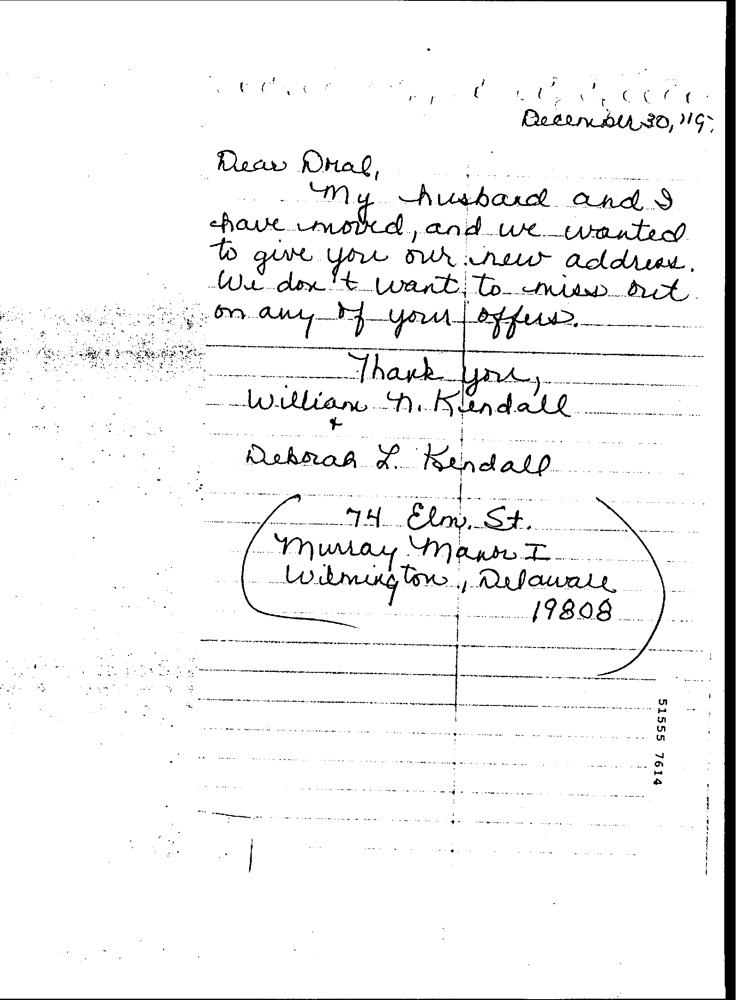 December 30, '19
Dear Dral,
My husband and I
have moved, and we wanted
to give you our new address.
We don't want to miss out
on any of your offers.
Thank you,
William N. Kendall
+
Deborah L. Kendall
74 Elm. St.
Murray Manor I
Wilmington, Delaware
19808
51555 7614